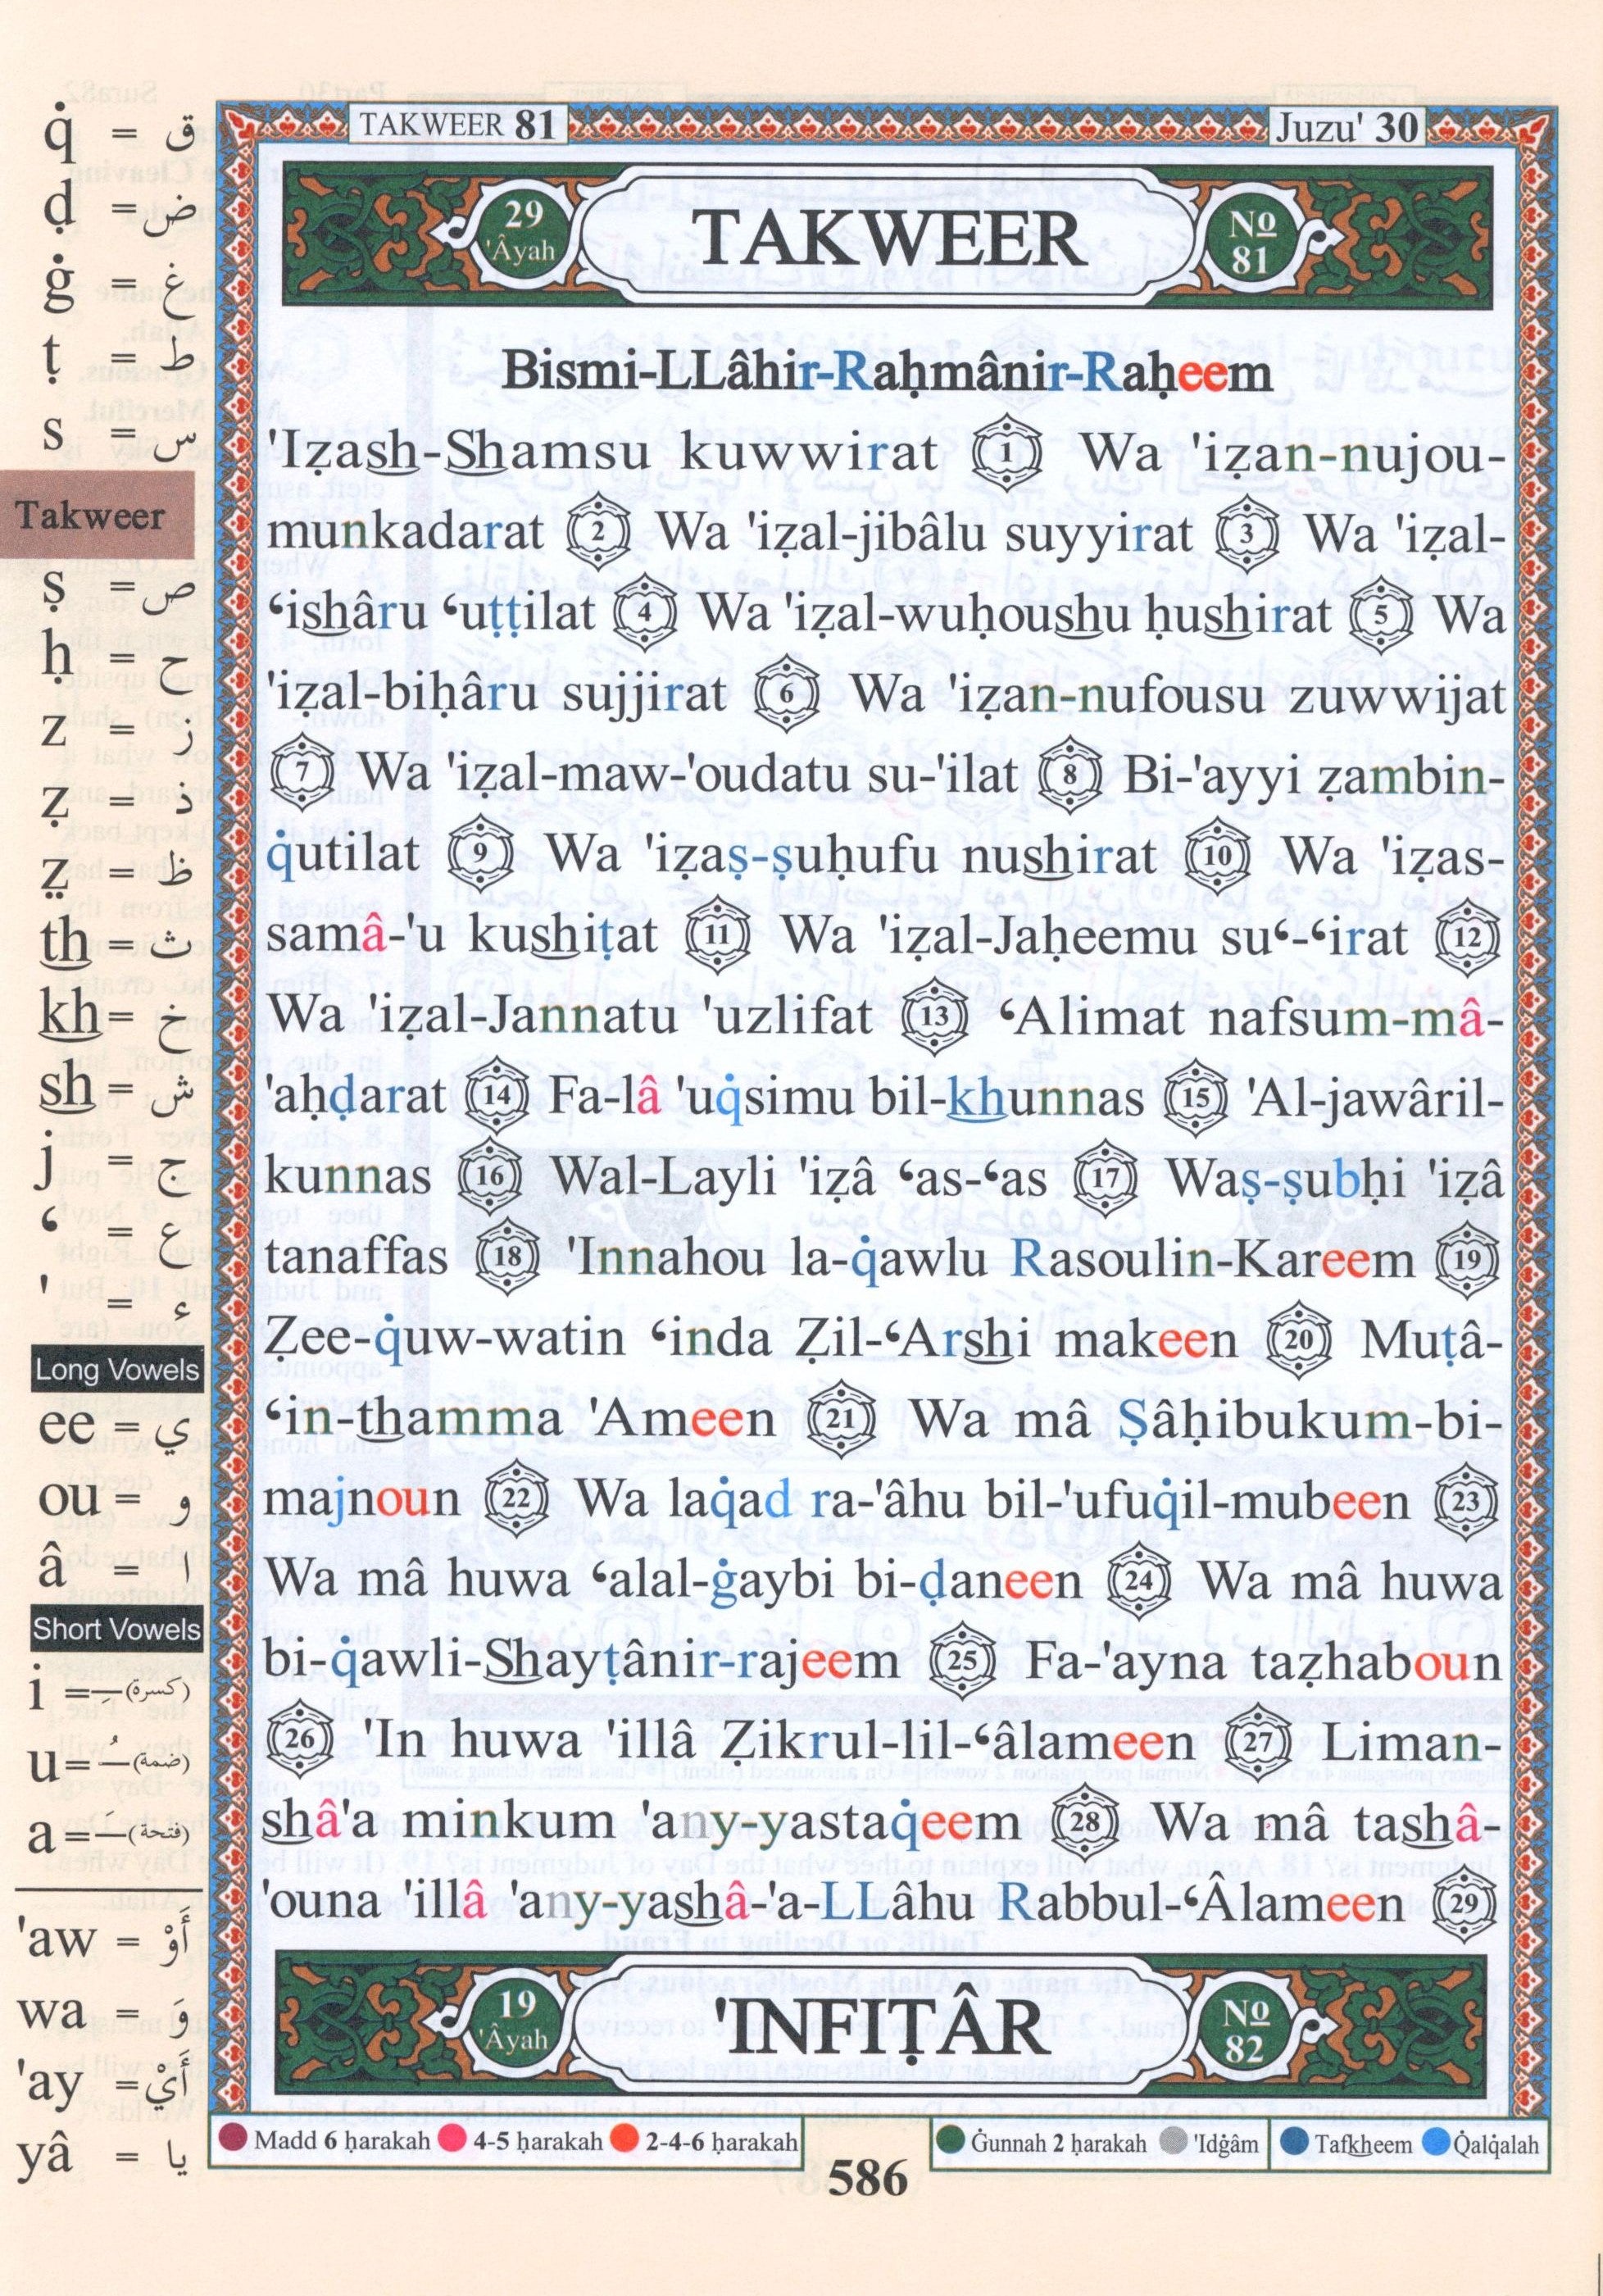 TAKWEER 81
Juzu' 30
29 'Âyah
TAKWEER
No 81
Bismi-LLâhir-Raḥmânir-Raḥeem
'Iẓash-Shamsu kuwwirat 1 Wa 'iẓan-nujou-
munkadarat 2 Wa 'iẓal-jibâlu suyyirat 3 Wa 'iẓal-
‘ishâru ‘uṭṭilat 4 Wa 'iẓal-wuḥoushu ḥushirat 5 Wa
'iẓal-biḥâru sujjirat 6 Wa 'iẓan-nufousu zuwwijat
7 Wa 'iẓal-maw-'oudatu su-'ilat 8 Bi-'ayyi ẓambin-
q̇utilat 9 Wa 'iẓaṣ-ṣuḥufu nushirat 10 Wa 'iẓas-
samâ-'u kushiṭat 11 Wa 'iẓal-Jaḥeemu su‘-‘irat 12
Wa 'iẓal-Jannatu 'uzlifat 13 ‘Alimat nafsum-mâ-
'aḥḍarat 14 Fa-lâ 'uq̇simu bil-khunnas 15 'Al-jawâril-
kunnas 16 Wal-Layli 'iẓâ ‘as-‘as 17 Waṣ-ṣubḥi 'iẓâ
tanaffas 18 'Innahou la-q̇awlu Rasoulin-Kareem 19
Ẓee-q̇uw-watin ‘inda Ẓil-‘Arshi makeen 20 Muṭâ-
‘in-thamma 'Ameen 21 Wa mâ Ṣâḥibukum-bi-
majnoun 22 Wa laq̇ad ra-'âhu bil-'ufuq̇il-mubeen 23
Wa mâ huwa ‘alal-ġaybi bi-ḍaneen 24 Wa mâ huwa
bi-q̇awli-Shayṭânir-rajeem 25 Fa-'ayna taẓhaboun
26 'In huwa 'illâ Ẓikrul-lil-‘âlameen 27 Liman-
shâ'a minkum 'any-yastaq̇eem 28 Wa mâ tashâ-
'ouna 'illâ 'any-yashâ-'a-LLâhu Rabbul-‘Âlameen 29
19 'Âyah
'INFIṬÂR
No 82
Madd 6 ḥarakah 4-5 ḥarakah 2-4-6 ḥarakah
Ġunnah 2 ḥarakah 'Idġâm Tafkheem Q̇alq̇alah
586
q̇ = ق
ḍ = ض
ġ = غ
ṭ = ط
s = س
Takweer
ṣ = ص
ḥ = ح
z = ز
ẓ = ذ
ẓ̤ = ظ
th = ث
kh = خ
sh = ش
j = ج
‘ = ع
' = ء
Long Vowels
ee = ي
ou = و
â = ا
Short Vowels
i = ـِ (كسرة)
u = ـُ (ضمة)
a = ـَ (فتحة)
'aw = أَوْ
wa = وَ
'ay = أَيْ
yâ = يا